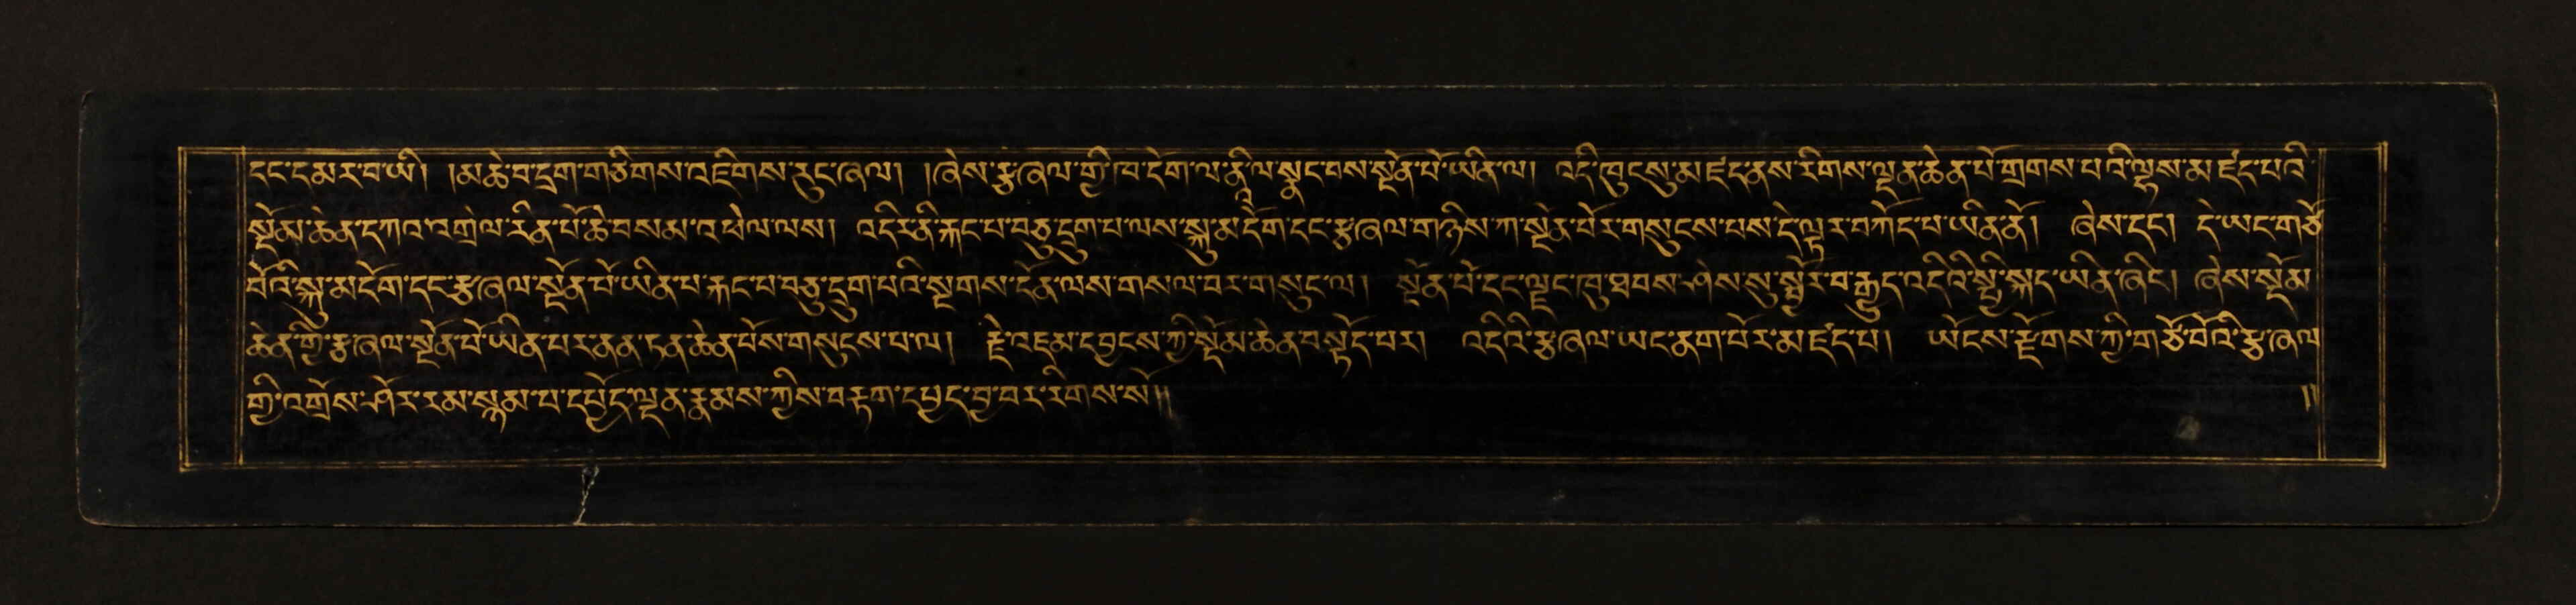 དང་དམར་བ་ཡི། །མཆེ་བ་དྲག་གཙིགས་འཇིགས་རུང་ཞལ། །ཞེས་རྩ་ཞལ་གྱི་ཁ་དོག་ལ་ནཱི་ལ་སྣང་བས་སྔོན་པོ་ཡིན་ལ། འདི་ཁུངསུ་མཛད་ནས་རིགས་ལྡན་ཆེན་པོ་གྲགས་པའི་ལྷས་མཛད་པའི་
སྡོམ་ཆེན་དཀའ་འགྲེལ་རིན་པོ་ཆེ་བསམ་འཕེལ་ལས། འདིར་ནི་རྐང་པ་བཅུ་དྲུག་པ་ལས་སྐུ་མདོག་དང་རྩ་ཞལ་གཉིས་ཀ་སྔོན་པོར་གསུངས་པས་དེ་ལྟར་བཀོད་པ་ཡིན་ནོ། ཞེས་དང། དེ་ཡང་གཙོ་
བོའི་སྐུ་མདོག་དང་རྩ་ཞལ་སྔོན་པོ་ཡིན་པ་རྐང་པ་བཅུ་དྲུག་པའི་སྔགས་དོན་ལས་གསལ་བར་གསུང་ལ། སྔོན་པོ་དང་ལྗང་ཁུ་ཐབས་ཤེས་སུ་སྦྱོར་བ་རྒྱུད་འདིའི་སྤྱི་སྐད་ཡིན་ཞིང། ཞེས་སྡོམ་
ཆེན་གྱི་རྩ་ཞལ་སྔོན་པོ་ཡིན་པར་ནན་ཏན་ཆེན་པོས་གསུངས་པ་ལ། རྗེ་འཇམ་དབྱངས་ཀྱི་སྡོམ་ཆེན་བསྟོད་པར། འདིའི་རྩ་ཞལ་ཡང་ནག་པོར་མཛད་པ། ཡོངས་རྫོགས་ཀྱི་གཙོ་བོའི་རྩ་ཞལ་
གྱི་འགྲོས་ཤོར་རམ་སྙམ་པ་དཔྱོད་ལྡན་རྣམས་ཀྱིས་བརྟག་དཔྱད་བྱ་བར་རིགས་སོ།། །།